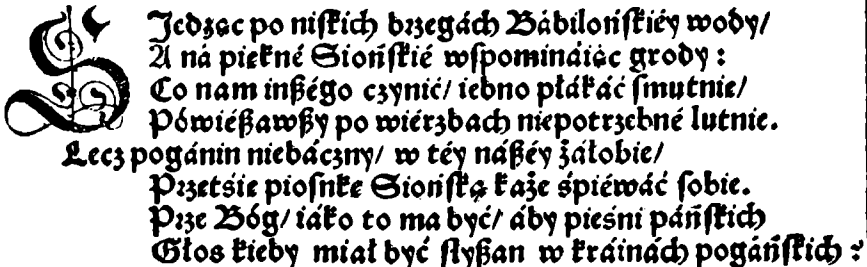 SJedząc po niſkich brzegách Bábilońſkiéy wody/
A ná piękné Siońſkié wſpomináiąc grody :
Co nam inßégo czynić/ iedno płákáć ſmutnie/
Pówiéßawßy po wiérzbach niepotrzebné lutnie.
Lecz pogánin niebáczny/ w téy náßéy żáłobie/
Przetśie pioſnkę Siońſką każe śpiéwáć ſobie.
Prze Bóg/ iáko to ma być/ áby pieśni páńſkich
Głos kieby miał być ſłyßan w kráinách pogáńſkich :